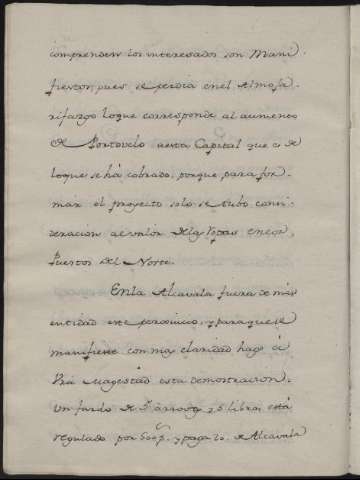 comprenden los interesados son Mani-
fiestos, pues se perdia en el Almoja-
rifazgo loque corresponde al aumento
de Portovelo aesta Capital que es de
loque se há cobrado, porque para for-
mar el proyecto solo se tubo consi-
deracion al valor delas ropas en los
Puertos del Norte.
Enla Alcavala fuera de mas
entidad este perjuicio, y para que se
manifieste con mas claridad hago á
Vra Magestad esta demostracion.
Un fardo de 25 libras está
regulado por 500p. y paga 20. de Alcavala